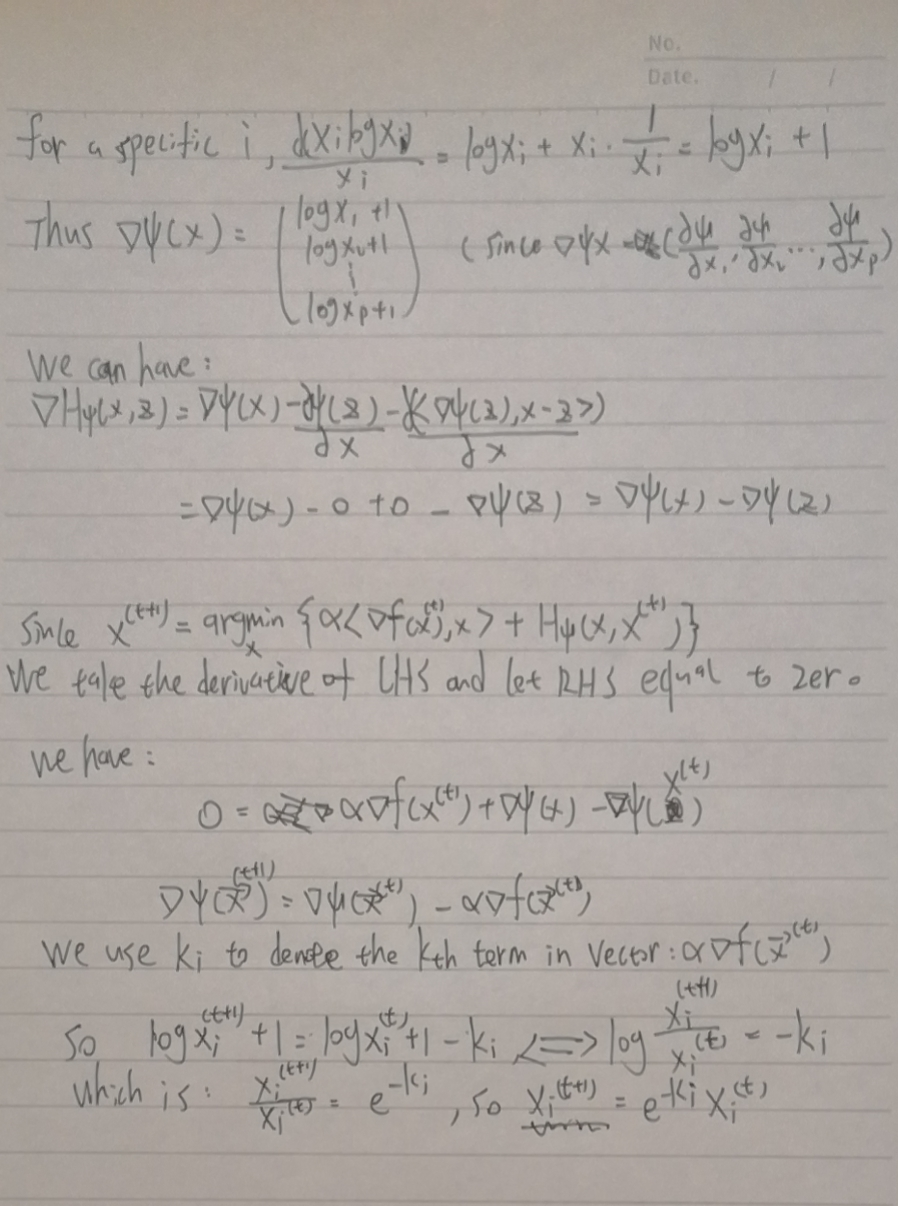 No.
Date. / /
for a specific i, d(xi log xi)/xi = log xi + xi · 1/xi = log xi + 1
Thus ∇ψ(x) = (log x1 +1, log x2+1, ⋮, log xp+1) (since ∇ψx (∂ψ/∂x1, ∂ψ/∂x2, ..., ∂ψ/∂xp)
We can have:
∇Hψ(x,z) = ∇ψ(x) - ∂ψ(z)/∂x - ∂(<∇ψ(z), x-z>)/∂x
= ∇ψ(x) - 0 + 0 - ∇ψ(z) = ∇ψ(x) - ∇ψ(z)
Since x^(t+1) = argmin_x {α<∇f(x^(t)), x> + Hψ(x, x^(t))}
We take the derivative of LHS and let RHS equal to zero.
we have:
0 = α∇f(x^(t)) + ∇ψ(x) - ∇ψ(x^(t))
∇ψ(x⃗^(t+1)) = ∇ψ(x⃗^(t)) - α∇f(x⃗^(t))
We use ki to denote the kth term in vector: α∇f(x⃗^(t))
So log xi^(t+1) +1 = log xi^(t) +1 - ki <=> log xi^(t+1)/xi^(t) = -ki
which is: xi^(t+1)/xi^(t) = e^-ki, so xi^(t+1) = e^-ki xi^(t)